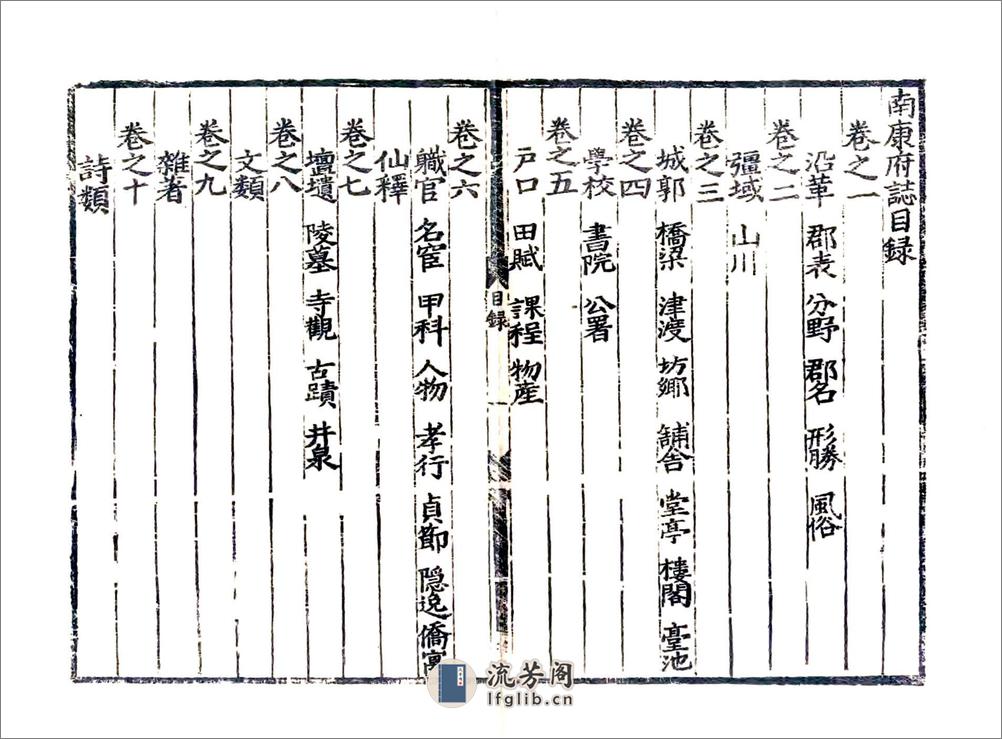 南康府誌目録
卷之一
沿革 郡表 分野 郡名 形勝 風俗
卷之二
彊域 山川
卷之三
城郭 橋梁 津渡 坊鄉 舖舍 堂亭 樓閣 臺池
卷之四
學校 書院 公署
卷之五
戸口 田賦 課程 物産
目録
一
卷之六
軄官 名宦 甲科 人物 孝行 貞節 隠逸 僑寓
仙釋
卷之七
壇壝 陵墓 寺觀 古蹟 井泉
卷之八
文類
卷之九
雜著
卷之十
詩類
流芳阁
lfglib.cn